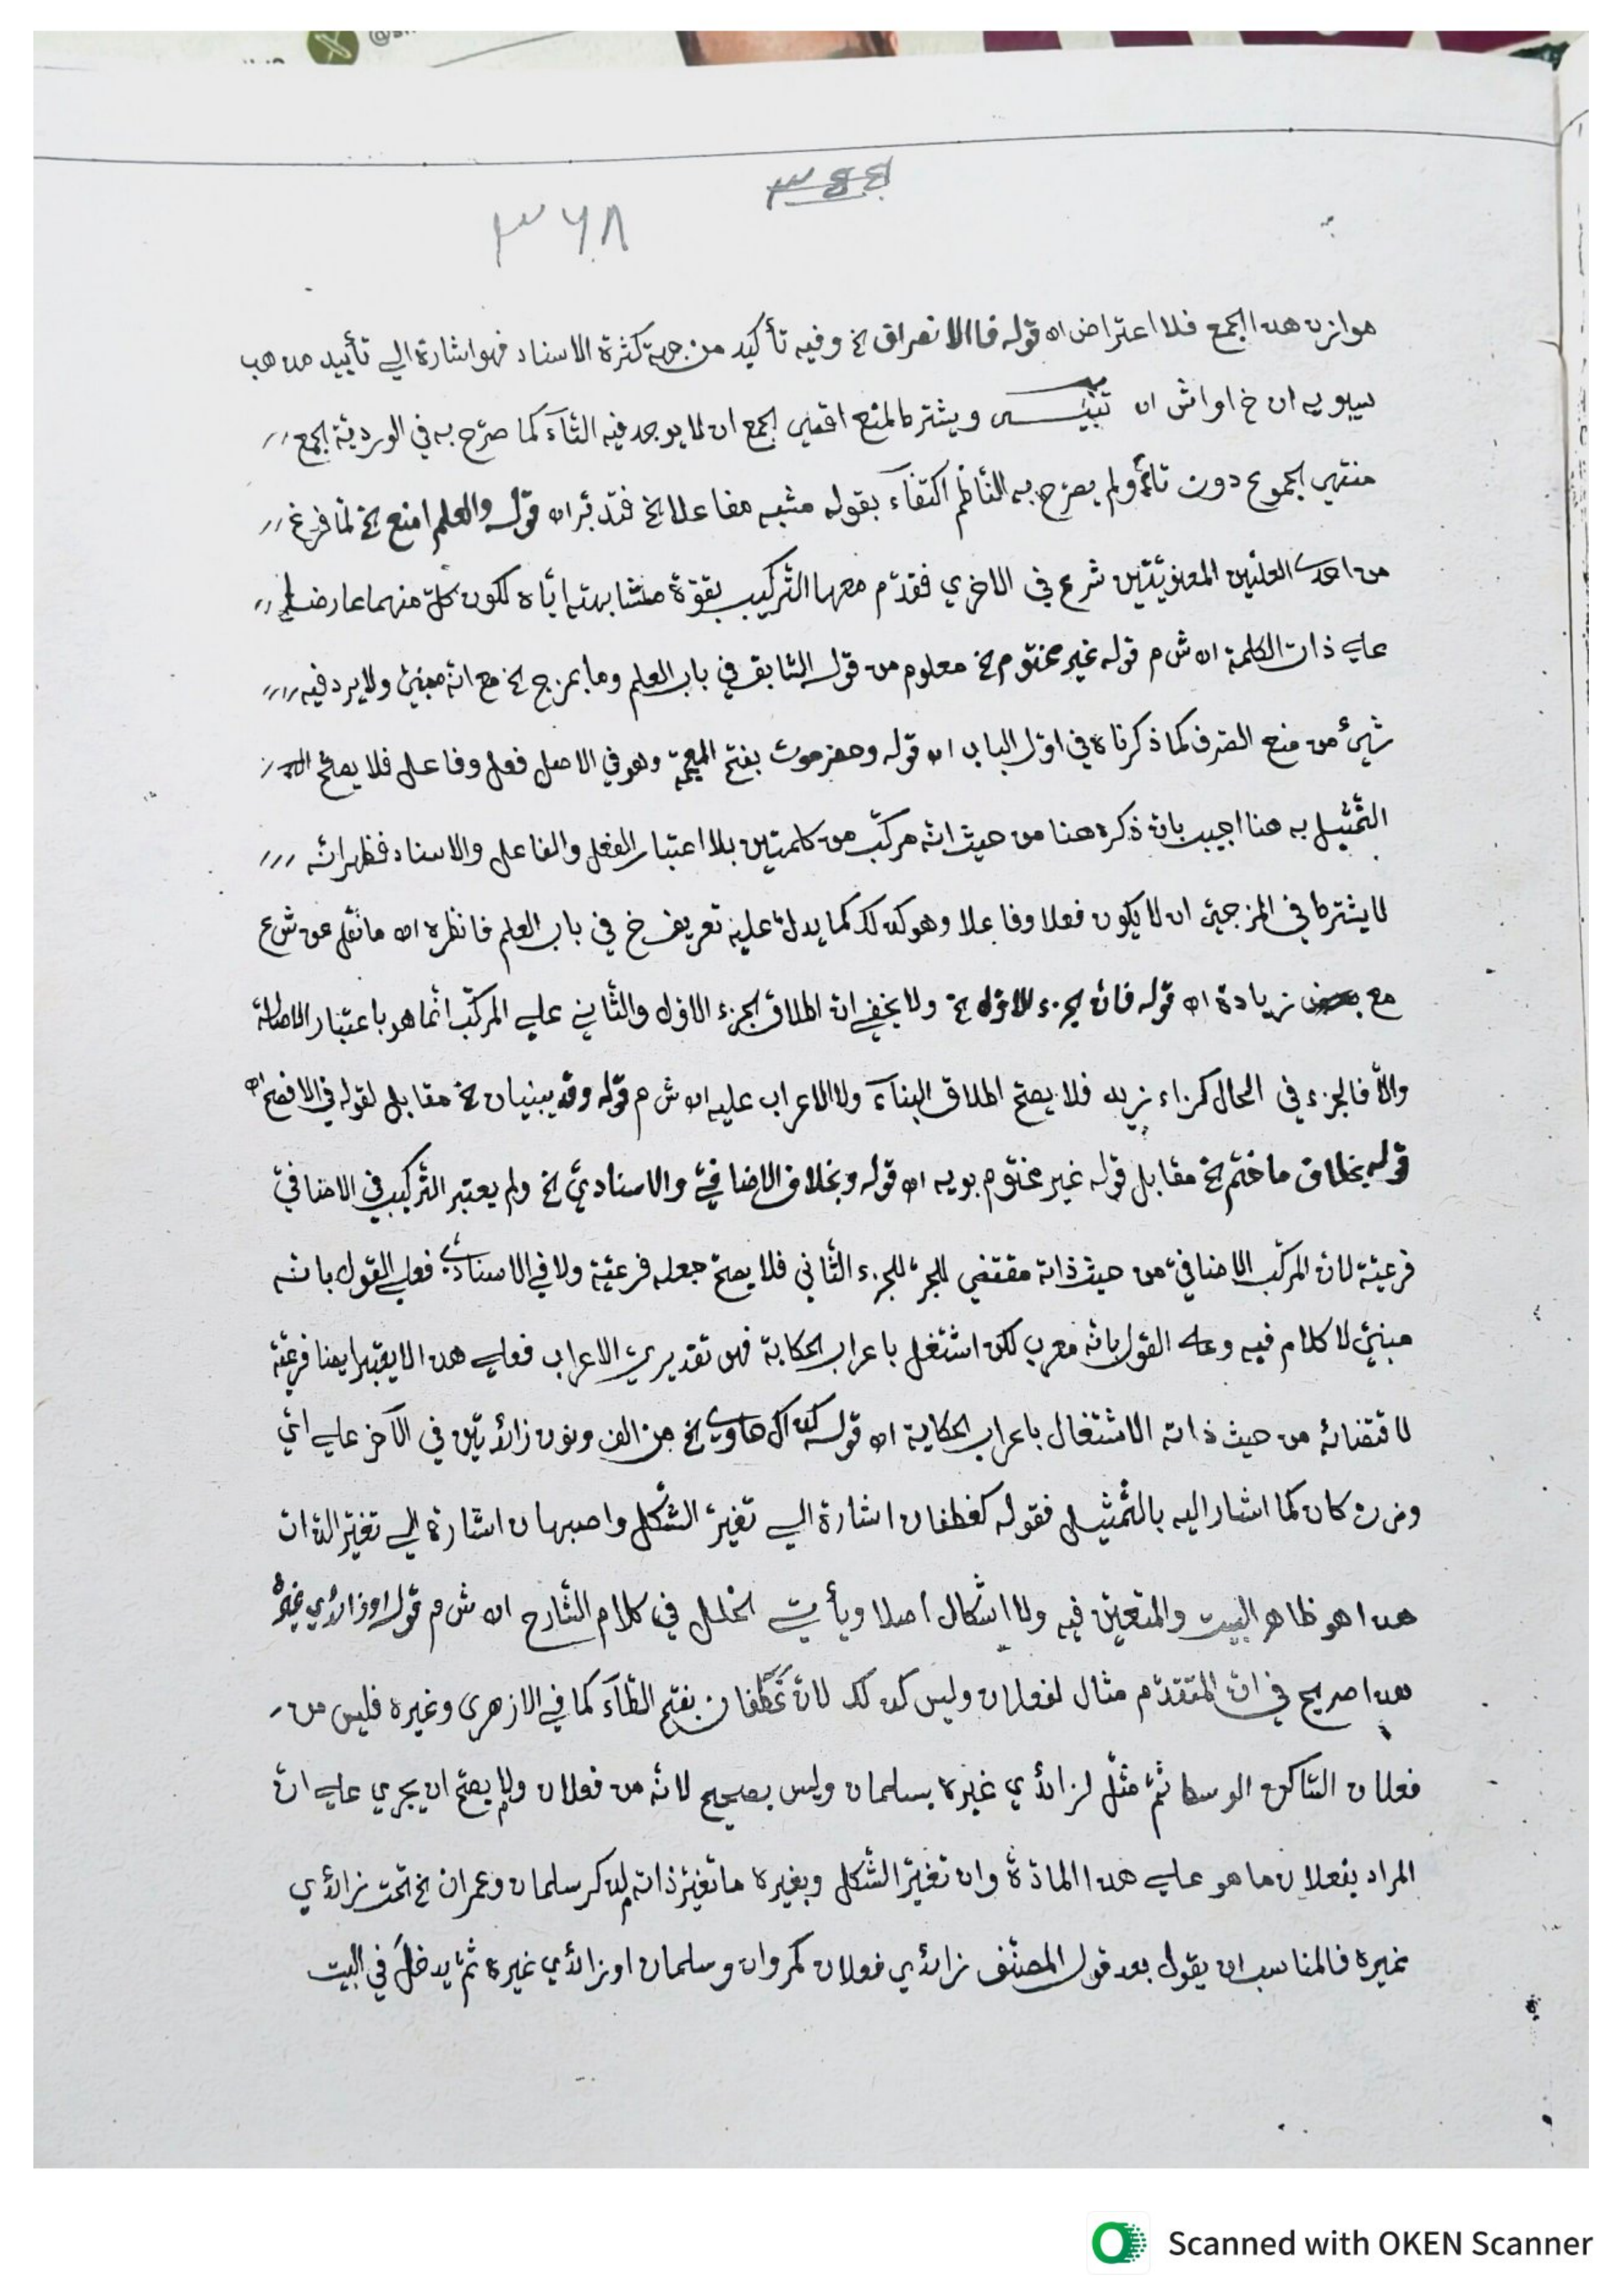 ٣٤٤
٣٦٨
موازن هذا الجمع فلا اعتراض اه قوله فاالانصراف خ وفيه تأكيد من جهة كثرة الاسناد فهو اشارة الي تأييد مذهب
سيبويه ان خ اواش اه تنبيـــه ويشترط لمنع اقصي الجمع ان لا يوجد فيه التآء كما صرّح به في الورديّة الجمع
منتهي الجموع دون تائم ولم يصرّح به النّاظم اكتفآء بقوله مشبه مفاعلا الخ فتدبّر اه قوله والعلم امنع الخ لمّا فرغ
من احدى العلتين المعنويّتين شرع في الاخري فقدّم معها التّركيب بقوّة مشابهته ايّاه لكون كلّ منهما عارضا
علي ذات الكلمة اه ش م قوله غير مختوم الخ معلوم من قوله السّابق في باب العلم وما بمزج الخ مع انّه مبنيّ ولا يرد فيه
شيئ من منع الصّرف كما ذكرناه في اوّل الباب اه قوله وحضرموت بفتح الميم وهو في الاصل فعل وفاعل فلا يصحّ
التّمثيل به هنا اجيب بانّ ذكره هنا من حيث انّه مركّب من كلمتين بلا اعتبار الفعل والفاعل والاسناد فظهر انّه
لا يشترط في المزجيّ ان لا يكون فعلا وفاعلا وهو كذلك كما يدلّ عليه تعريف خ في باب العلم فانظره اه ما نقل عن ش ع
مع بعض زيادة اه قوله فانّ الجزء الاوّل الخ ولا يخفي انّ اطلاق الجزء الاوّل والثّاني علي المركّب انّما هو باعتبار الاصالة
والّا فالجزء في الحال كزاء زيد فلا يصحّ اطلاق البنآء ولا الاعراب عليه اه ش م قوله وقد يبنيان الخ مقابل لقوله في الافصح اه
قوله بخلاف ما ختم الخ مقابل قوله غير مختوم بويه اه قوله وبخلاف الاضافيّ والاسناديّ الخ ولم يعتبر التّركيب في الاضافيّ
فرعيّة لانّ المركّب الاضافيّ من حيث ذاته مقتضي للجرّ للجزء الثّاني فلا يصحّ جعله فرعيّة ولا في الاسناديّ فعلي القول بانّه
مبنيّ لا كلام فيه وعلي القول بانّه معرب لكن اشتغل باعراب الحكاية فهو تقديريّ الاعراب فعلي هذا لا يعتبر ايضا فرعيّة
لاقتضائه من حيث ذاته الاشتغال باعراب الحكاية اه قوله كذاك حاوي الخ من الف ونون زائدتين في الآخر علي ايّ
وزن كان كما اشار اليه بالتّمثيل فقوله كغطفان اشارة الي تغيّر الشّكل واصبهان اشارة الي تغيّر الذّات
هذا هو ظاهر البيت والمتعيّن فيه ولا اشكال اصلا ويأتي الخلل في كلام الشّارح اه ش م قوله او زائدي غيره
هذا صريح في انّ المتقدّم مثال لفعلان وليس كذلك لانّ غَطَفان بفتح الطّآء كما في الازهري وغيره فليس من
فعلان السّاكن الوسط ثمّ مثّل لزائدي غيره بسلمان وليس بصحيح لانّه من فعلان ولا يصحّ ان يجري علي انّ
المراد بفعلان ما هو علي هذا المادّة وان تغيّر الشّكل وبغيره ما تغيّر ذاته لم يذكر سلمان وعمران الخ تحت زائدي
غيره فالمناسب ان يقول بعد قول المصنّف زائدي فعلان كمروان وسلمان او زائدي غيره ثمّ يدخل في البيت
Scanned with OKEN Scanner